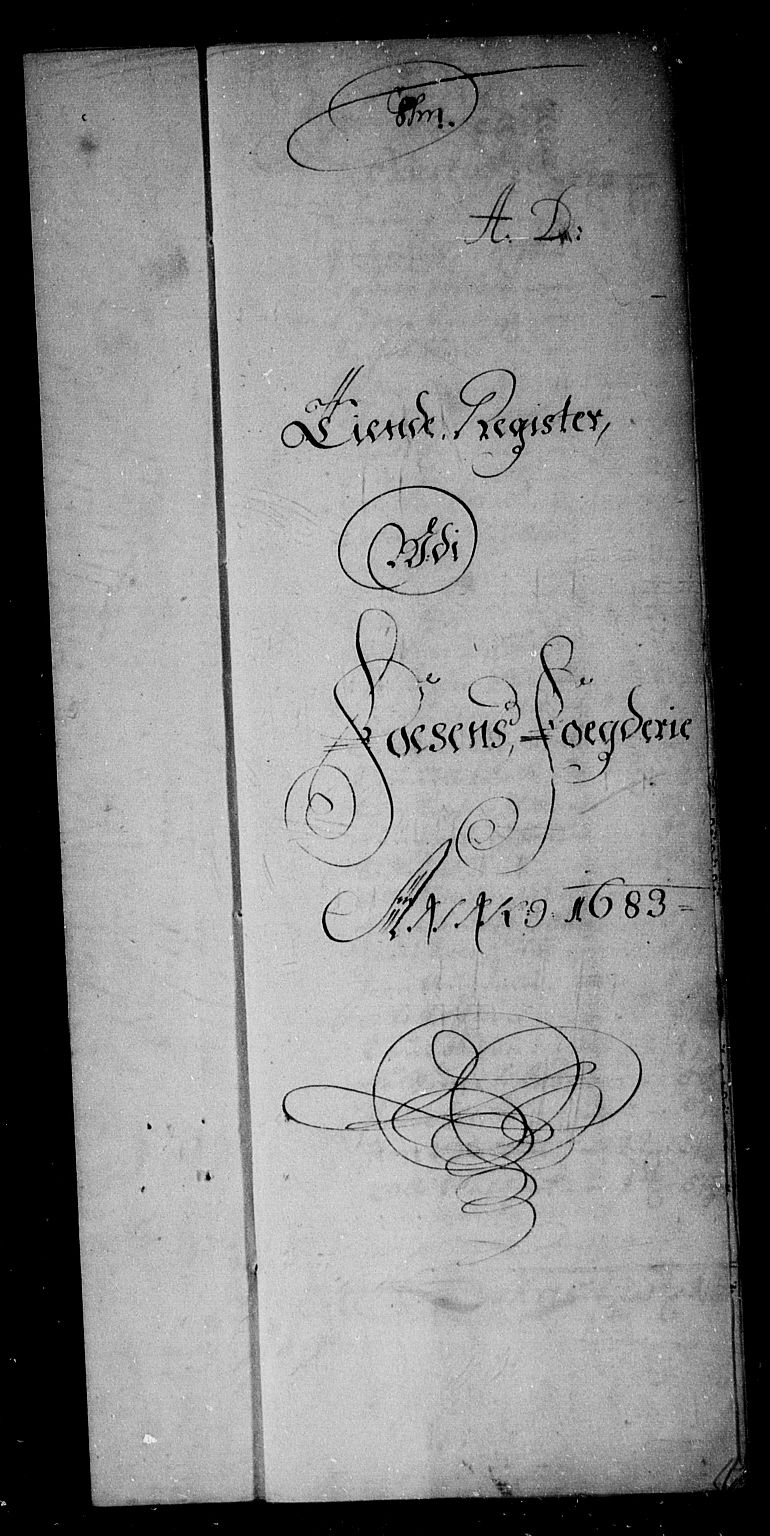 A. D:
Tiende Register,
Udi
Foesens, Foegderie
ANNO 1683